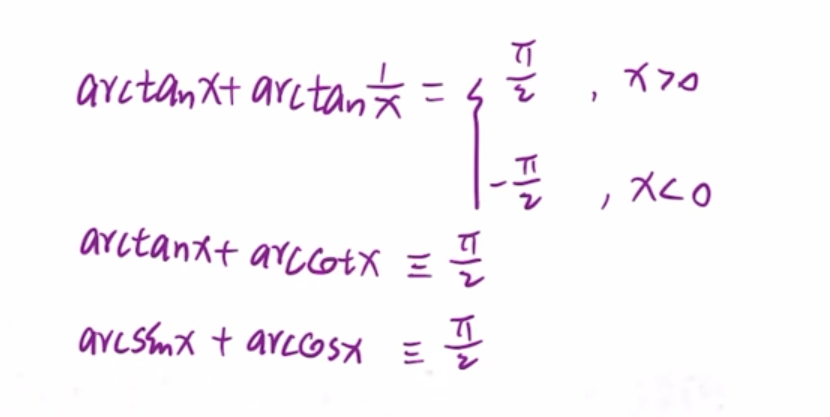 arctanx + arctan 1/x = { π/2 , x>0
-π/2 , x<0
arctanx + arccotx ≡ π/2
arcsinx + arccosx ≡ π/2